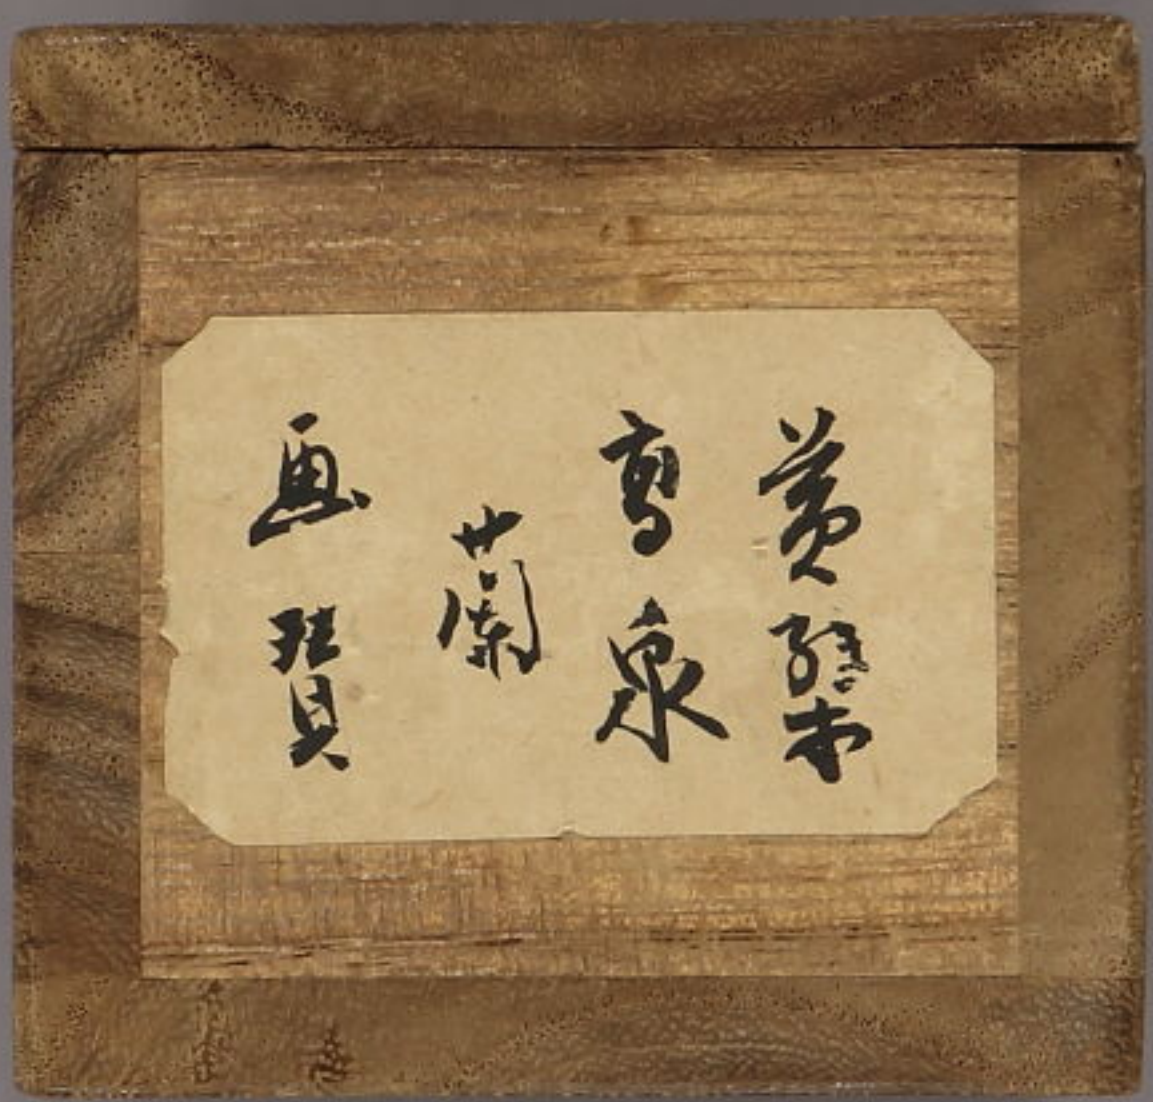 黄檗
高泉
蘭
画賛